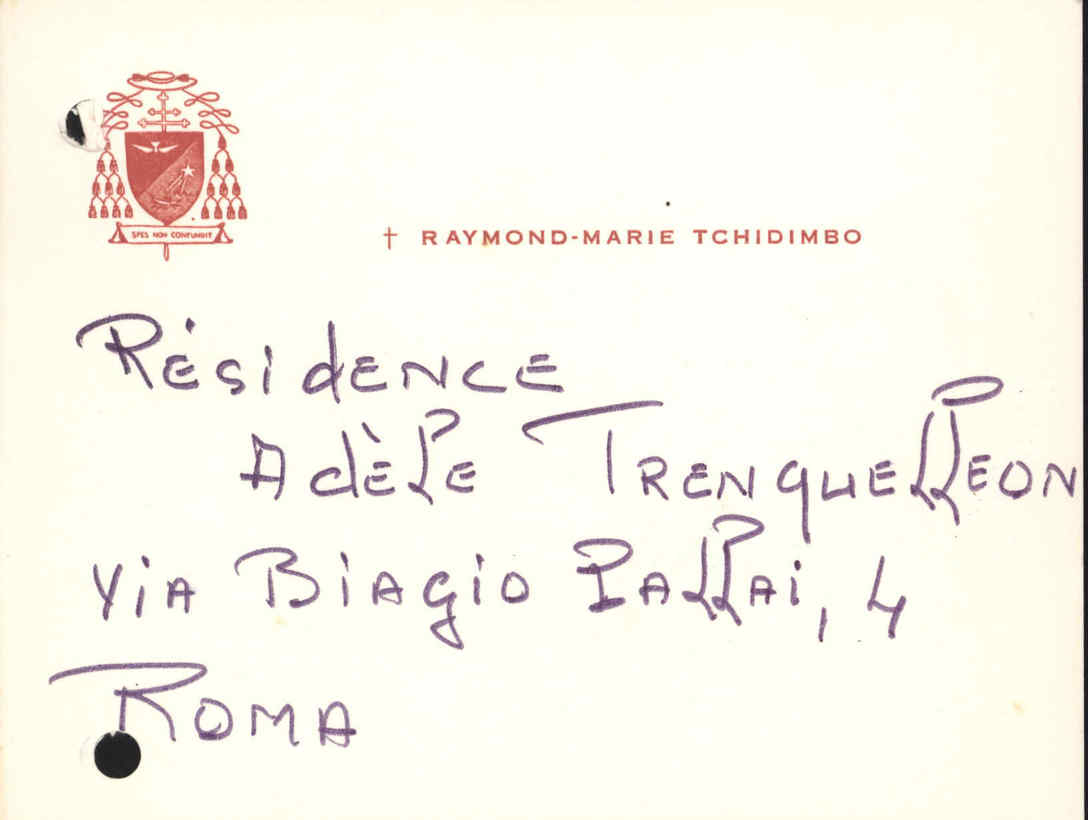 SPES NON CONFUNDIT
† RAYMOND-MARIE TCHIDIMBO
Résidence
Adèle Trenquelleon
Via Biagio Pallai, 4
Roma